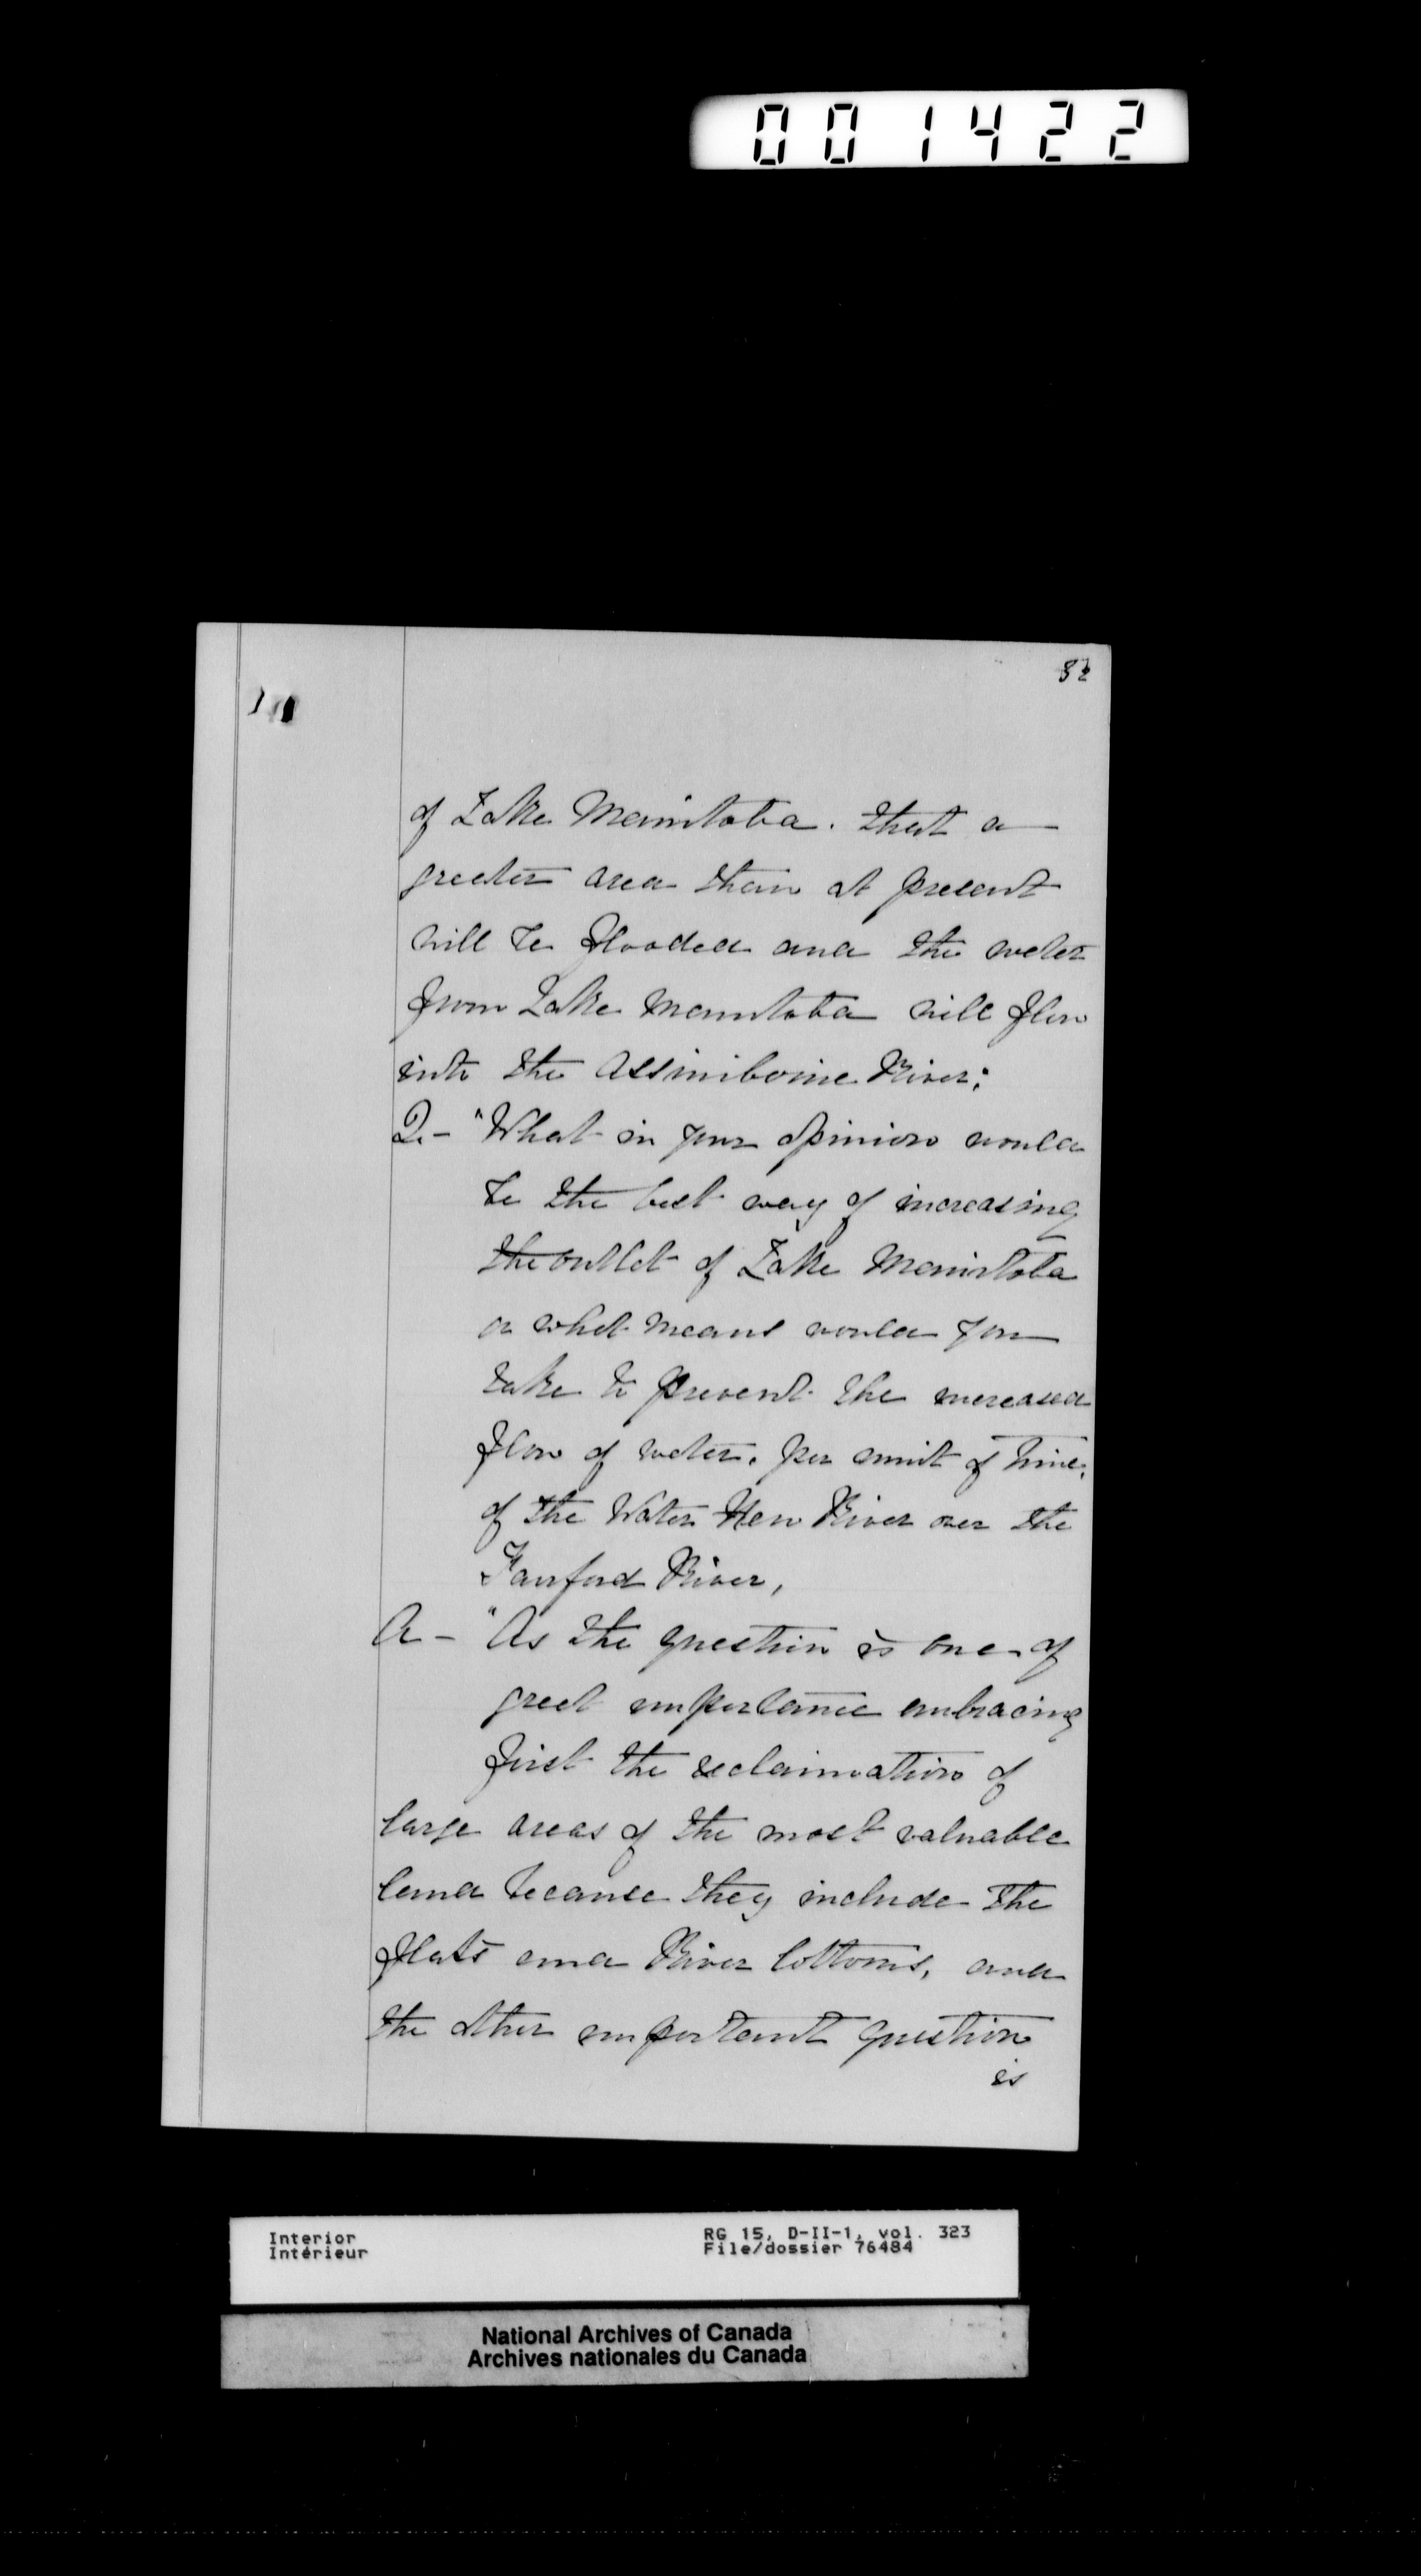 001422
82
of Lake Manitoba. that a
greater area than at present
will be flooded and the water
from Lake Manitoba will flow
into the Assiniboine River;
Q - "What in your opinion would
be the best way of increasing
the outlet of Lake Manitoba
or what means would you
take to prevent the increased
flow of water, per unit of time,
of the Water Hen River over the
Fairford River,
A - "As the question is one of
great importance embracing
first the reclaimation of
large areas of the most valuable
land because they include the
flats and River bottoms, and
the other important question
is
Interior
Intérieur
RG 15, D-II-1, vol. 323
File/dossier 76484
National Archives of Canada
Archives nationales du Canada